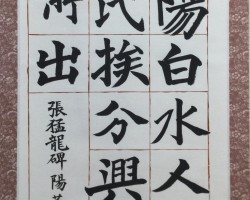 陽白水人
氏族分興
所出
張猛龍碑 陽